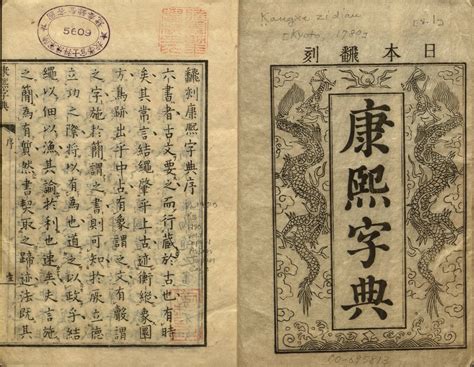 日本飜刻
康熙字典
飜刻康熙字典序
六書者古文要之而行藏於古也有時
矣其常言結繩肇乎上古迹衡縱象圓
方鳥跡出乎中古有像謂之文有謂
之字施於簡謂之書則可知於厥立德
立功之際將以有為也道之以政乎結
繩以佃以漁其諭於利也速矣史言施
之簡為有然書契取之歸迹法既其
康熙字典
序
5609